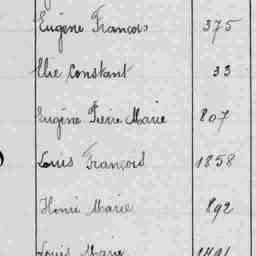 Eugène François 375
Elie Constant 33
Eugène Pierre Marie 807
Louis François 1858
Henri Marie 892
Louis Marie